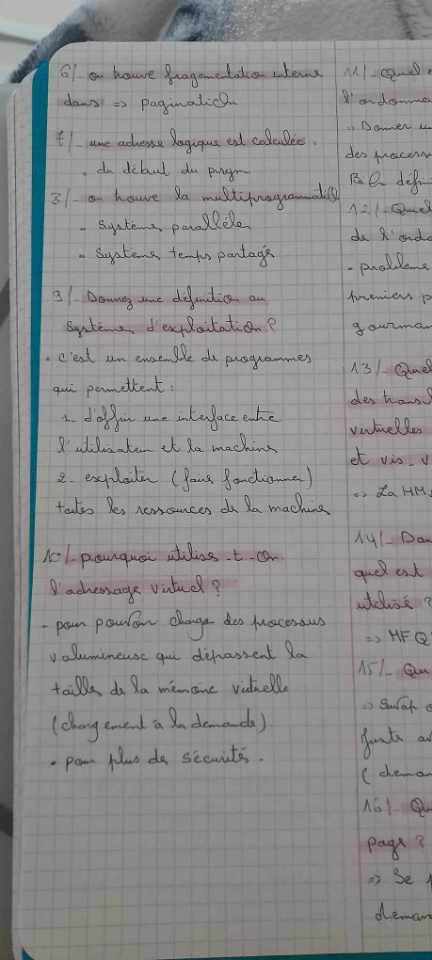 6/- on trouve fragementation interne
dans => pagination
7/- une adresse logique est calculée.
. du début du prgm
8/- on trouve la multiprogrammation
- Système parallèle
- Système temps partagé
9/- Donnez une définition au
Système d'exploitation ?
. c'est un ensemble de programmes
qui permettent :
1. d'offrir une interface entre
l'utilisateur et la machine
2. exploiter (faire fonctionner)
toutes les ressources de la machine
10/- pourquoi utilise-t-on
l'adressage virtuel ?
- pour pouvoir charge des processus
valumineuse qui dépassent la
taille de la mémoire virtuelle
(chargement à la demande)
. pour plus de sécurités.
11/- Quel
l'ordonna
des process
12/- Quel
de l'ordo
- problème
premiers p
gourman
13/- Quel
des trans
virtuelles
et vis-v
=> La MM
14/- Don
quel est
utilisé ?
=> MFQ
15/- Qu
=> Swap
(deman
16/- Qu
page ?
=> Se
deman